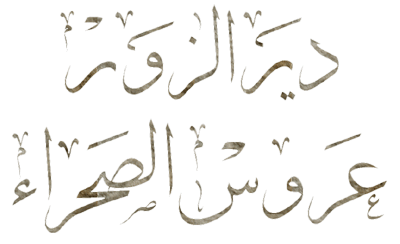 دير الزور
عروس الصحراء